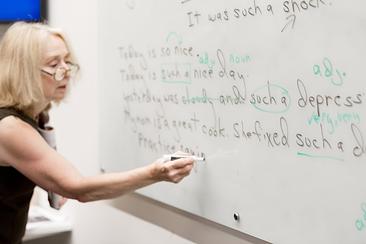 It was such a shock.
Today is so nice. adj. noun
Today is such a nice day. adj.
Yesterday was cloudy and such a depress
very, very
Hyman is a great cook. She fixed such a d
Practice
adj